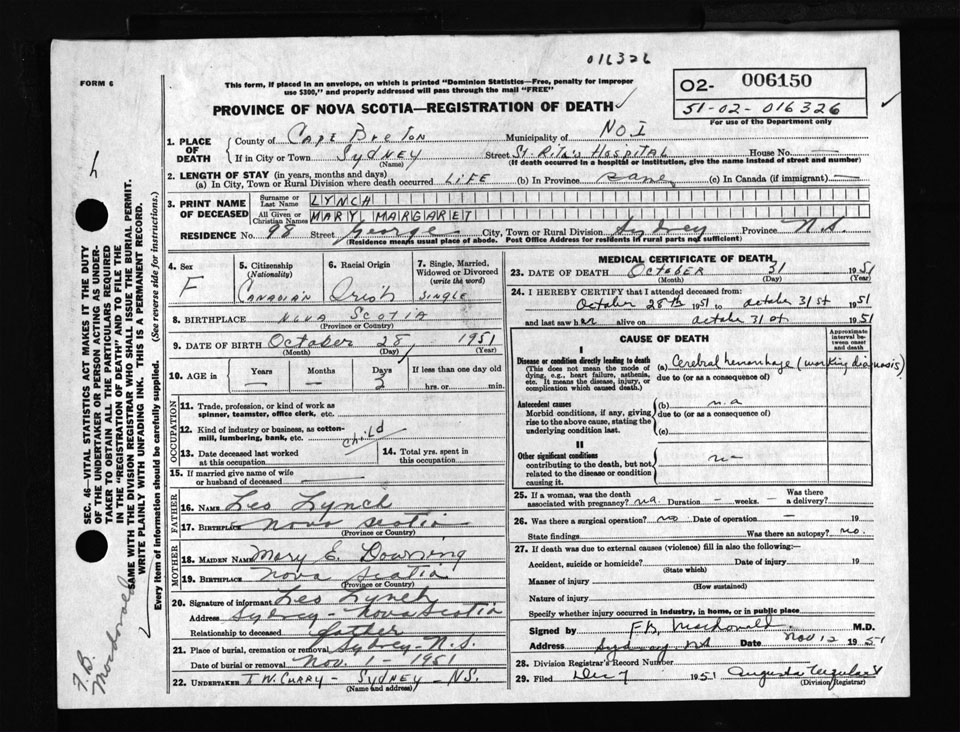 016326
FORM 6
This form, if placed in an envelope, on which is printed "Dominion Statistics—Free, penalty for improper
use $300," and properly addressed will pass through the mail "FREE"
O2- 006150
51-02-016326
For use of the Department only
PROVINCE OF NOVA SCOTIA—REGISTRATION OF DEATH
1. PLACE OF DEATH
County of Cape Breton Municipality of No. I
If in City or Town SYDNEY Street St. Rita's Hospital House No. —
(Name) (If death occurred in a hospital or institution, give the name instead of street and number)
2. LENGTH OF STAY (in years, months and days)
(a) In City, Town or Rural Division where death occurred LIFE (b) In Province same (c) In Canada (if immigrant) —
3. PRINT NAME OF DECEASED
Surname or Last Name LYNCH
All Given or Christian Names MARY MARGARET
RESIDENCE No. 98 Street George City, Town or Rural Division Sydney Province N.S.
(Residence means usual place of abode. Post Office Address for residents in rural parts not sufficient)
4. Sex
F
5. Citizenship
(Nationality)
Canadian
6. Racial Origin
Irish
7. Single, Married,
Widowed or Divorced
(write the word)
Single
8. BIRTHPLACE Nova Scotia
(Province or Country)
9. DATE OF BIRTH October 28 1951
(Month) (Day) (Year)
10. AGE in Years — Months — Days 3 If less than one day old
hrs. or min.
OCCUPATION
11. Trade, profession, or kind of work as
spinner, teamster, office clerk, etc.
12. Kind of industry or business, as cotton-
mill, lumbering, bank, etc. child
13. Date deceased last worked
at this occupation
14. Total yrs. spent in
this occupation
15. If married give name of wife
or husband of deceased —
FATHER
16. NAME Leo Lynch
17. BIRTHPLACE Nova Scotia
(Province or Country)
MOTHER
18. MAIDEN NAME Mary E. Downing
19. BIRTHPLACE Nova Scotia
(Province or Country)
20. Signature of informant Leo Lynch
Address Sydney - Nova Scotia
Relationship to deceased father
21. Place of burial, cremation or removal Sydney - N.S.
Date of burial or removal Nov. 1 - 1951
22. UNDERTAKER T.W. Curry - Sydney - NS.
(Name and address)
MEDICAL CERTIFICATE OF DEATH
23. DATE OF DEATH October 31 1951
(Month) (Day) (Year)
24. I HEREBY CERTIFY that I attended deceased from:
October 28th 1951 to october 31st 1951
and last saw her alive on october 31st 1951
CAUSE OF DEATH
Approximate
interval be-
tween onset
and death
I
Disease or condition directly leading to death
(This does not mean the mode of
dying, e.g., heart failure, asthenia,
etc. It means the disease, injury, or
complication which caused death.)
(a) Cerebral hemorrhage (working diagnosis)
due to (or as a consequence of)
Antecedent causes
Morbid conditions, if any, giving
rise to the above cause, stating the
underlying condition last.
(b) n.a
due to (or as a consequence of)
(c)
II
Other significant conditions
contributing to the death, but not
related to the disease or condition
causing it.
25. If a woman, was the death
associated with pregnancy? na. Duration — weeks — Was there
a delivery?
26. Was there a surgical operation? no Date of operation — 19
State findings Was there an autopsy? no.
27. If death was due to external causes (violence) fill in also the following:—
Accident, suicide or homicide? Date of injury 19
(State which)
Manner of injury
(How sustained)
Nature of injury
Specify whether injury occurred in industry, in home, or in public place
Signed by F.B. Macdonald M.D.
Address Sydney NS Date Nov 12 1951
28. Division Registrar's Record Number
29. Filed Dec 7 1951 Augusta
(Division Registrar)
SEC. 46—VITAL STATISTICS ACT MAKES IT THE DUTY
OF THE UNDERTAKER OR PERSON ACTING AS UNDER-
TAKER TO OBTAIN ALL THE PARTICULARS REQUIRED
IN THE "REGISTRATION OF DEATH" AND TO FILE THE
SAME WITH THE DIVISION REGISTRAR WHO SHALL ISSUE THE BURIAL PERMIT.
WRITE PLAINLY WITH UNFADING INK. THIS IS A PERMANENT RECORD.
Every item of information should be carefully supplied. (See reverse side for instructions.)
F.B.
Macdonald